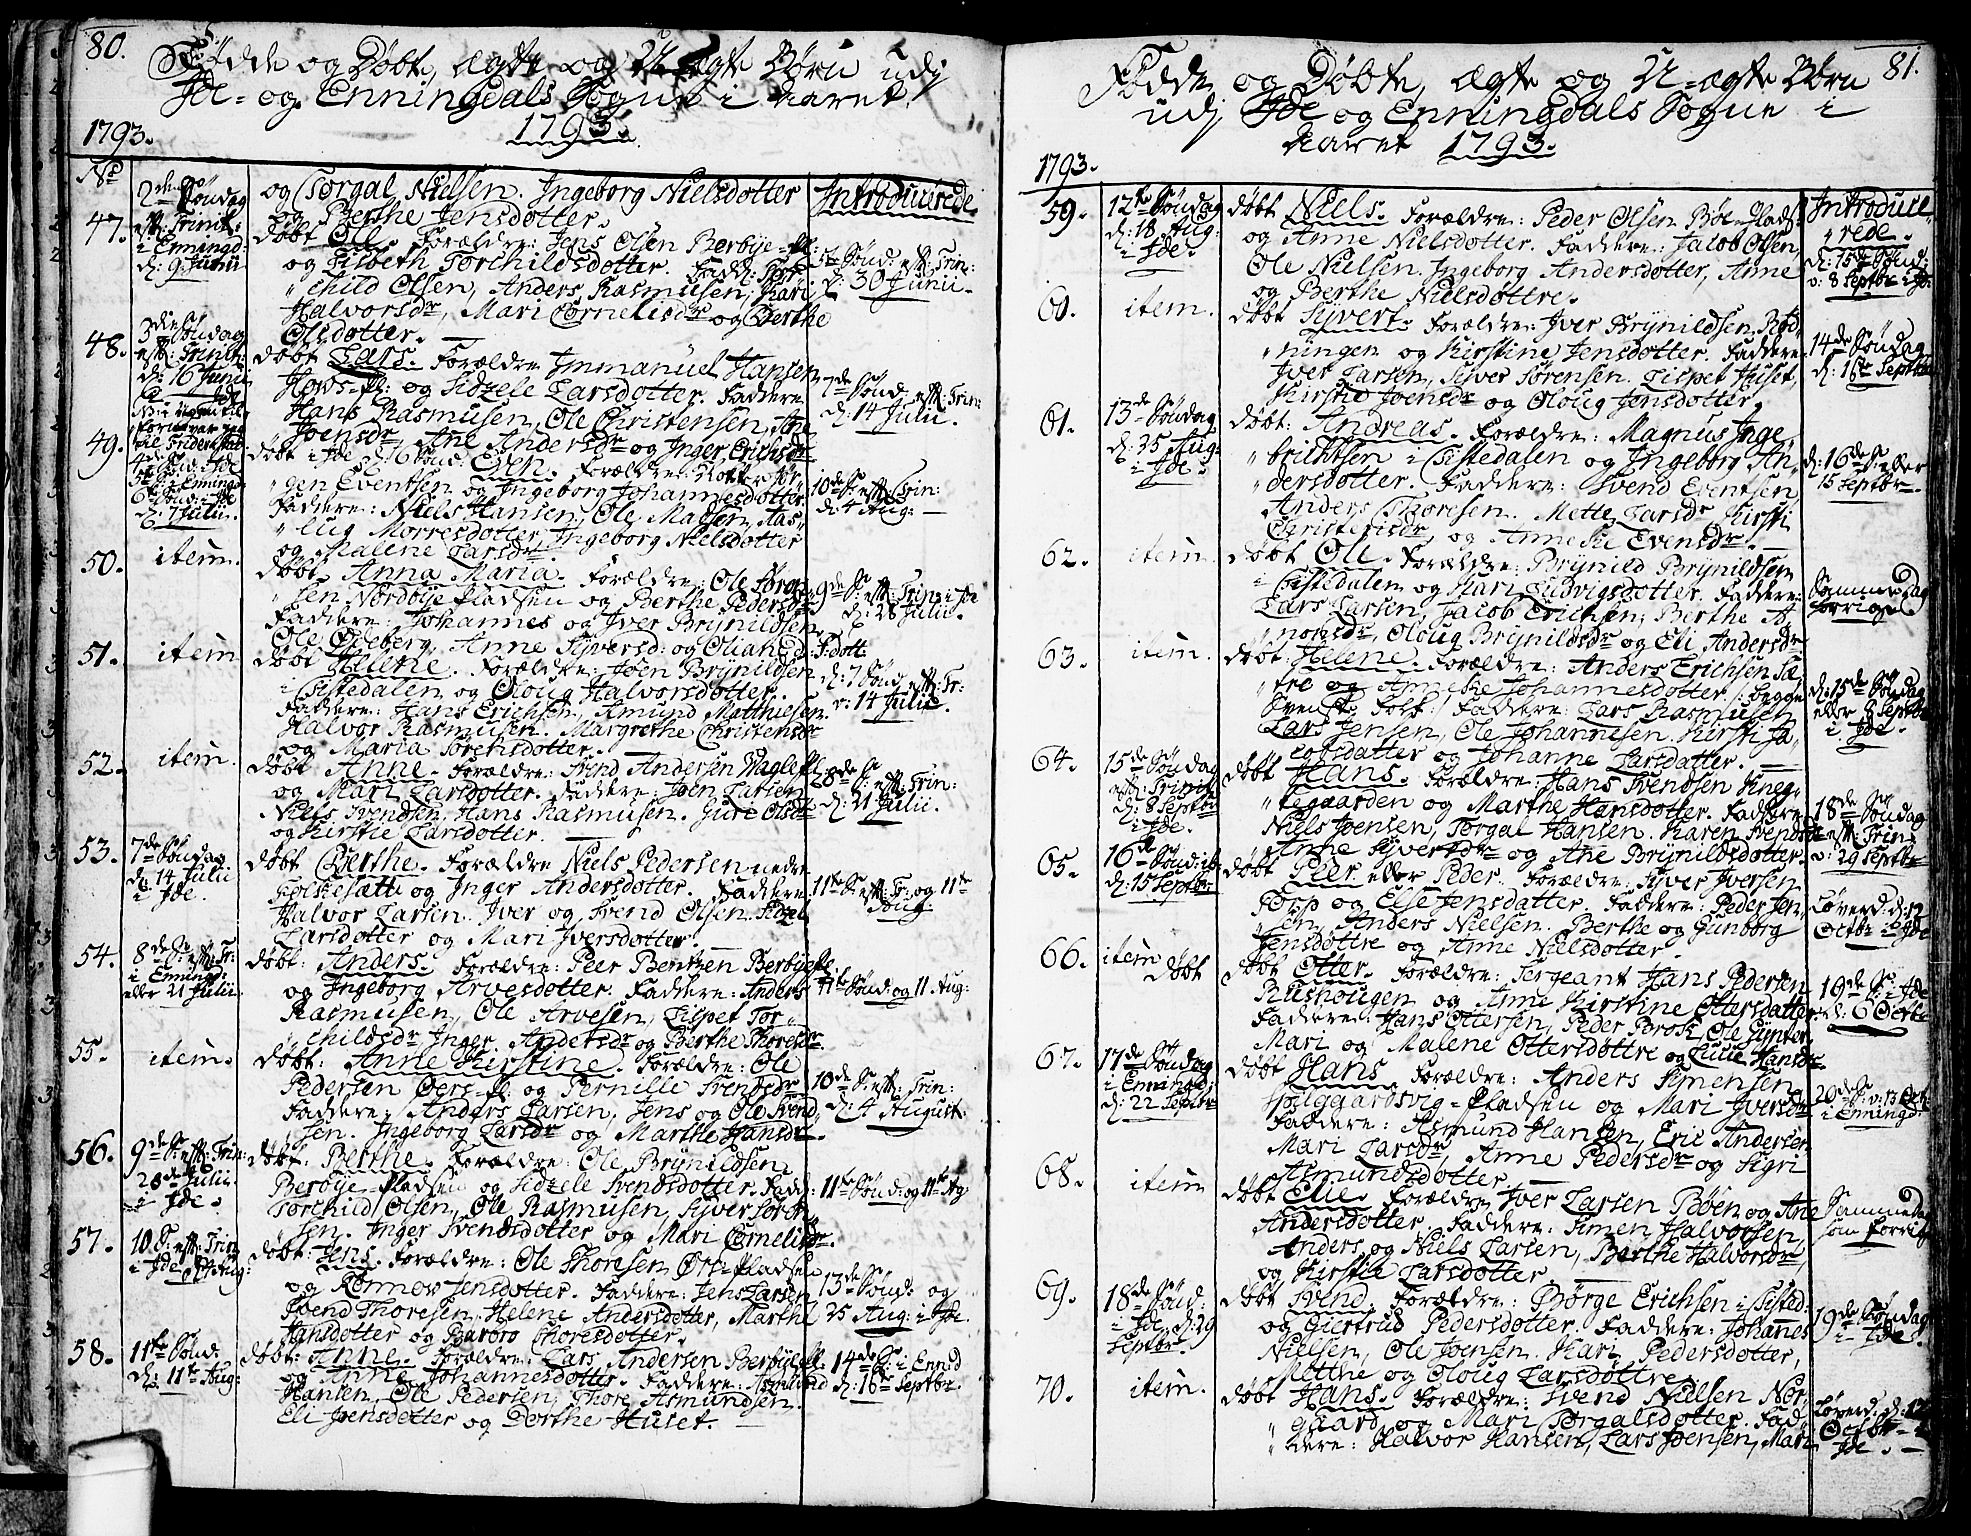 80.
Fødde og Døbte, ægte og U-ægte Børn udj
Ide- og Enningdals Sogne i Aaret
1793.
1793.
No
2den Søndag
eft: Trinit:
i Enningd:
d: 9 Junii
og Torgal Nielsen. Ingeborg Nielsdotter
og Berthe Jensdotter.
Introducerede.
47.
døbt Ole. Forældre: Jens Olsen Berbye-Pl:
og Lisbeth Torchildsdotter. Fadd: Tor-
child Olsen, Anders Rasmusen, Kari
Halvorsdr, Mari Cornelisdr og Berthe
Olsdotter.
5te Sønd: eft: Trin:
d: 30 Junii.
48.
3die Søndag
eft: Trinit:
d: 16 Junii
døbt Lars. Forældre Immanuel Hansen
Hovs-Pl: og Sidzele Larsdotter. Faddere
Hans Rasmusen, Ole Christensen, Ane
Joensdr, Ane Andersdr og Inger Erichsdr
7de Sønd: eft: Trin:
d: 14 Julii.
49.
4de Sønd: i Ide
5te S: i Enningd:
6te Sønd: i Ide
d: 7 Julii.
døbt i Ide d: 6 Sønd: Even. Forældre: Rotter Jør-
gen Eventsen og Ingeborg Johannesdotter
Faddere: Niels Hansen, Ole Madsen, Aas-
lug Morresdotter, Ingeborg Nielsdotter
og Malene Larsdr.
10de S: eft: Trin:
d: 4 Aug:
50.
item.
døbt. Anna Maria. Forældre: Ole Jørgen-
sen Nordbye Pladsen og Berthe Pedersdr
Faddere: Johannes og Iver Brynildsen,
Ole Ogeberg, Anne Syversd: og Oliana Ped:dott:
9de S: eft: Trin: i Ide
d: 28 Julii.
51.
item
døbt Helene. Forældre: Joen Brynildsen
i Tistedalen og Oloug Halvorsdotter.
Faddere: Hans Erichsen, Amund Matthiesen.
Halvor Rasmusen. Margrethe Christensdr
og Maria Sørensdotter.
d: 7 Sønd: eft: Tr:
v: 14 Julii.
52.
item.
døbt Anne. Forældre: Svend Andersen Wagle Pl:
og Mari Larsdotter. Faddere: Joen Larsen
Niels Svendsen, Hans Rasmusen. Gure Olsdr
og Kirstie Larsdotter.
8de S: eft: Trin:
d: 21 Julii.
53.
7de Søndag
d: 14 Julii
i Ide.
døbt Berthe. Forældre Niels Pedersen nedre
og Inger Andersdotter. Faddere
Halvor Larsen. Iver og Svend Olsen. Sidzel
Larsdotter og Mari Iversdotter.
11te S: eft: Tr: og 11te
Aug:
54.
8de S: eft: Tr:
i Enningd:
eller 21 Julii.
døbt: Anders. Forældre: Peer Bentzen Berbye Pl:
og Ingeborg Arvesdotter. Faddere: Anders
Rasmusen, Ole Arvesen, Lispet Tor-
childsdr Inger Andersdr og Berthe Thoresdr.
11te Sønd: og 11 Aug:
55.
item.
døbt: Anne Kirstine. Forældre: Ole
Pedersen Øers-Pl: og Pernille Svendsdr
Faddere: Anders Larsen, Jens og Ole Svend-
sen. Ingeborg Larsdr og Marthe Hansdr.
10de S: eft: Trin:
d: 4 August:
56.
9de S: eft: Trin:
28de Julii
i Ide.
døbt. Berthe. Forældre: Ole Brynildsen
Berbye-Pladsen og Sidzele Svendsdotter. Fadd:
Torchild Olsen, Ole Rasmusen, Syver Søren-
sen. Inger Svendsdotter og Mari Cornelisdr.
11te Sønd: og 11te Ag:
57.
10. S: eft: Trin
i Ide d: 4 Aug:
døbt. Jens. Forældre: Ole Thoresen Ørs-Pladsen
og Ronnow Jensdotter. Faddere: Jens Larsen
Svend Thoresen, Helene Andersdotter, Marthe
Hansdotter og Barbro Thoresdotter.
13de Sønd: og
25 Aug: i Ide.
58.
11te Sønd:
d: 11te Aug:
døbt: Anne. Forældre: Lars Andersen Berbye Pl:
og Anne Johannesdotter. Faddere: Asmund
Hansen, Ole Pedersen, Thore Asmundsen.
Eli Joensdotter og Dorthe Huset.
14de S: i Ennd
d: 16te Septbr.
81.
Fødde og Døbte, ægte og U-ægte Børn
udj Ide og Enningdals Sogne i
Aaret 1793.
1793.
Introduce-
rede.
59.
12te Søndag
d: 18 Aug:
i Ide.
døbt Niels. Forældre: Peder Olsen Bøe-Plads:
og Anne Nielsdotter. Faddere: Jacob Olsen,
Ole Nielsen. Ingeborg Andersdotter, Anne
og Berthe Nielsdøttre.
d: 15de Sønd:
v: 8 Septbr i Ide
60.
item.
døbt Syvert. Forældre: Iver Brynildsen Rød-
ningen og Kirstine Jensdotter. Faddere
Iver Larsen, Syver Sørensen. Lispet Huset,
Kirstie Joensdr og Oloug Jensdotter.
14de Søndag
d: 1ste Septbr
61.
13de Søndag
d: 25 Aug:
i Ide.
døbt: Andreas. Forældre: Magnus Inge-
brichtsen i Tistedalen og Ingeborg An-
dersdotter. Faddere: Svend Eventsen,
Anders Thoresen. Mette Larsdr Kirsti
Christensdr, og Anneke Evensdr.
d: 16de S: eller
15 Septbr.
62.
item.
døbt Ole. Forældre: Brynild Brynildsen
i Tistedalen og Kari Ludvigsdotter. Faddere:
Lars Larsen, Jacob Erichsen; Berthe A-
morsdr, Oloug Brynildsdr og Eli Andersdr
Samme Dag
Forrige
63.
item.
døbt: Helene. Forældre: Anders Erichsen Sæ-
tre og Anneke Johannesdotter /: begge
Svensk Folk :/ Faddere: Lars Rasmusen
Lars Jensen, Ole Johannesen. Kirsti Ja-
cobsdatter og Johanne Larsdatter.
d: 15de Søndag
eller 8 Septbr
i Ide.
64.
15de Søndag
eft: Trinit:
d: 8 Septbr
i Ide.
døbt Hans. Forældre: Hans Svendsen Kneg-
tegaarden og Marthe Hansdotter. Faddere
Niels Joensen, Torgal Hansen. Karen Svendsdr
Anne Syvertsdr og Ane Brynildsdotter.
18de Søndag
eft: Trin
v: 29 Septbr
65.
16de Sønd: ib:
d: 15 Septbr
døbt Peer eller Peder. Forældre. Syver Iversen
Torp og Else Jensdatter. Faddere: Peder Jen-
sen, Anders Nielsen. Berthe og Gunborg
Jensdøttre og Anne Nielsdotter.
Løverd: d: 12
Octbr i Ide
66.
item
Døbt
døbt Otter. Forældre: Sergeant Hans Pedersen
Rishougen og Anne Kirstine Ottersdatter
Faddere: Hans Ottersen, Peder Brok, Ole Gynter.
Mari og Malene Ottersdøttre og Lucie Hansdr
19de S: i Ide
d: 6 Octbr
67.
17de Søndag
i Enningd:
d: 22 Septbr
døbt Hans. Forældre: Anders Symensen
Holggardsvig-Pladsen og Mari Iversdr
Faddere: Asmund Hansen, Eric Andersen
Mari Larsdr, Anne Pedersdr og Sigri
Asmundsdotter.
20de S: v: 13 Oct:
i Enningd:
68.
item
døbt Elie. Forældre Iver Larsen Bøen og Ane
Andersdotter. Faddere: Simen Halvorsen,
Anders og Niels Larsen, Berthe Halvorsdr,
og Kirstie Larsdotter
Samme Dag
som Forrige
69.
18de Sønd:
i Ide, d: 29
Septbr.
døbt Svend. Forældre: Børge Erichsen i Tisted-
og Giertrud Pedersdotter. Faddere: Johannes
Nielsen, Ole Joensen. Kari Pedersdotter,
Metthe og Oloug Larsdøttre.
19de Søndag
i Ide.
70.
item.
døbt Hans. Forældre: Svend Nielsen Nor-
gaard og Mari Torgalsdotter. Fad-
dere: Halvor Hansen, Lars Joensen, Mari
Løverd: d: 12
Octbr
Ide.